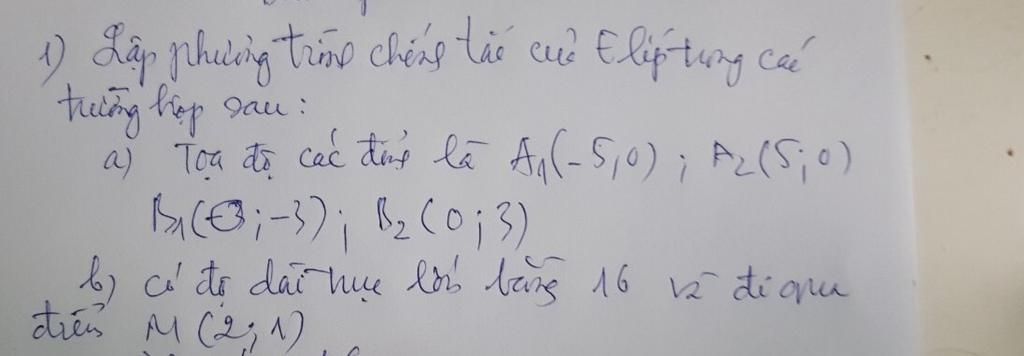 1) Lập phương trình chính tắc của Elip trong các
trường hợp sau:
a) Tọa độ các đỉnh là A1(-5,0) ; A2(5;0)
B1(0;-3) ; B2(0;3)
b) có độ dài trục lớn bằng 16 và đi qua
điểm M(2;1)